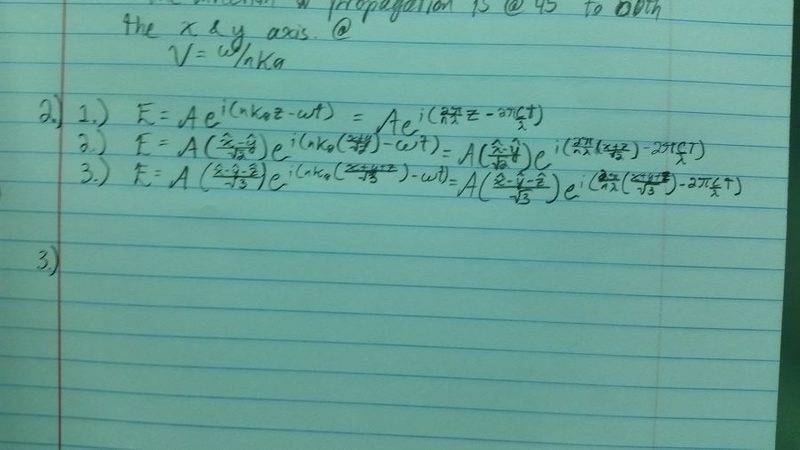 propagation is @ 45 to both
the x & y axis. @
V = ω/nk₀
2.) 1.) E = Ae^i(nk₀z - ωt) = Ae^i(2π/nλ z - 2π c/λ t)
2.) E = A((x̂-ŷ)/√2)e^i(nk₀((x+y)/√2) - ωt) = A((x̂-ŷ)/√2)e^i(2π/nλ((x+z)/√2) - 2π c/λ t)
3.) E = A((x̂-ŷ-ẑ)/√3)e^i(nk₀((x+y+z)/√3) - ωt) = A((x̂-ŷ-ẑ)/√3)e^i(2π/nλ((x+y+z)/√3) - 2π c/λ t)
3.)